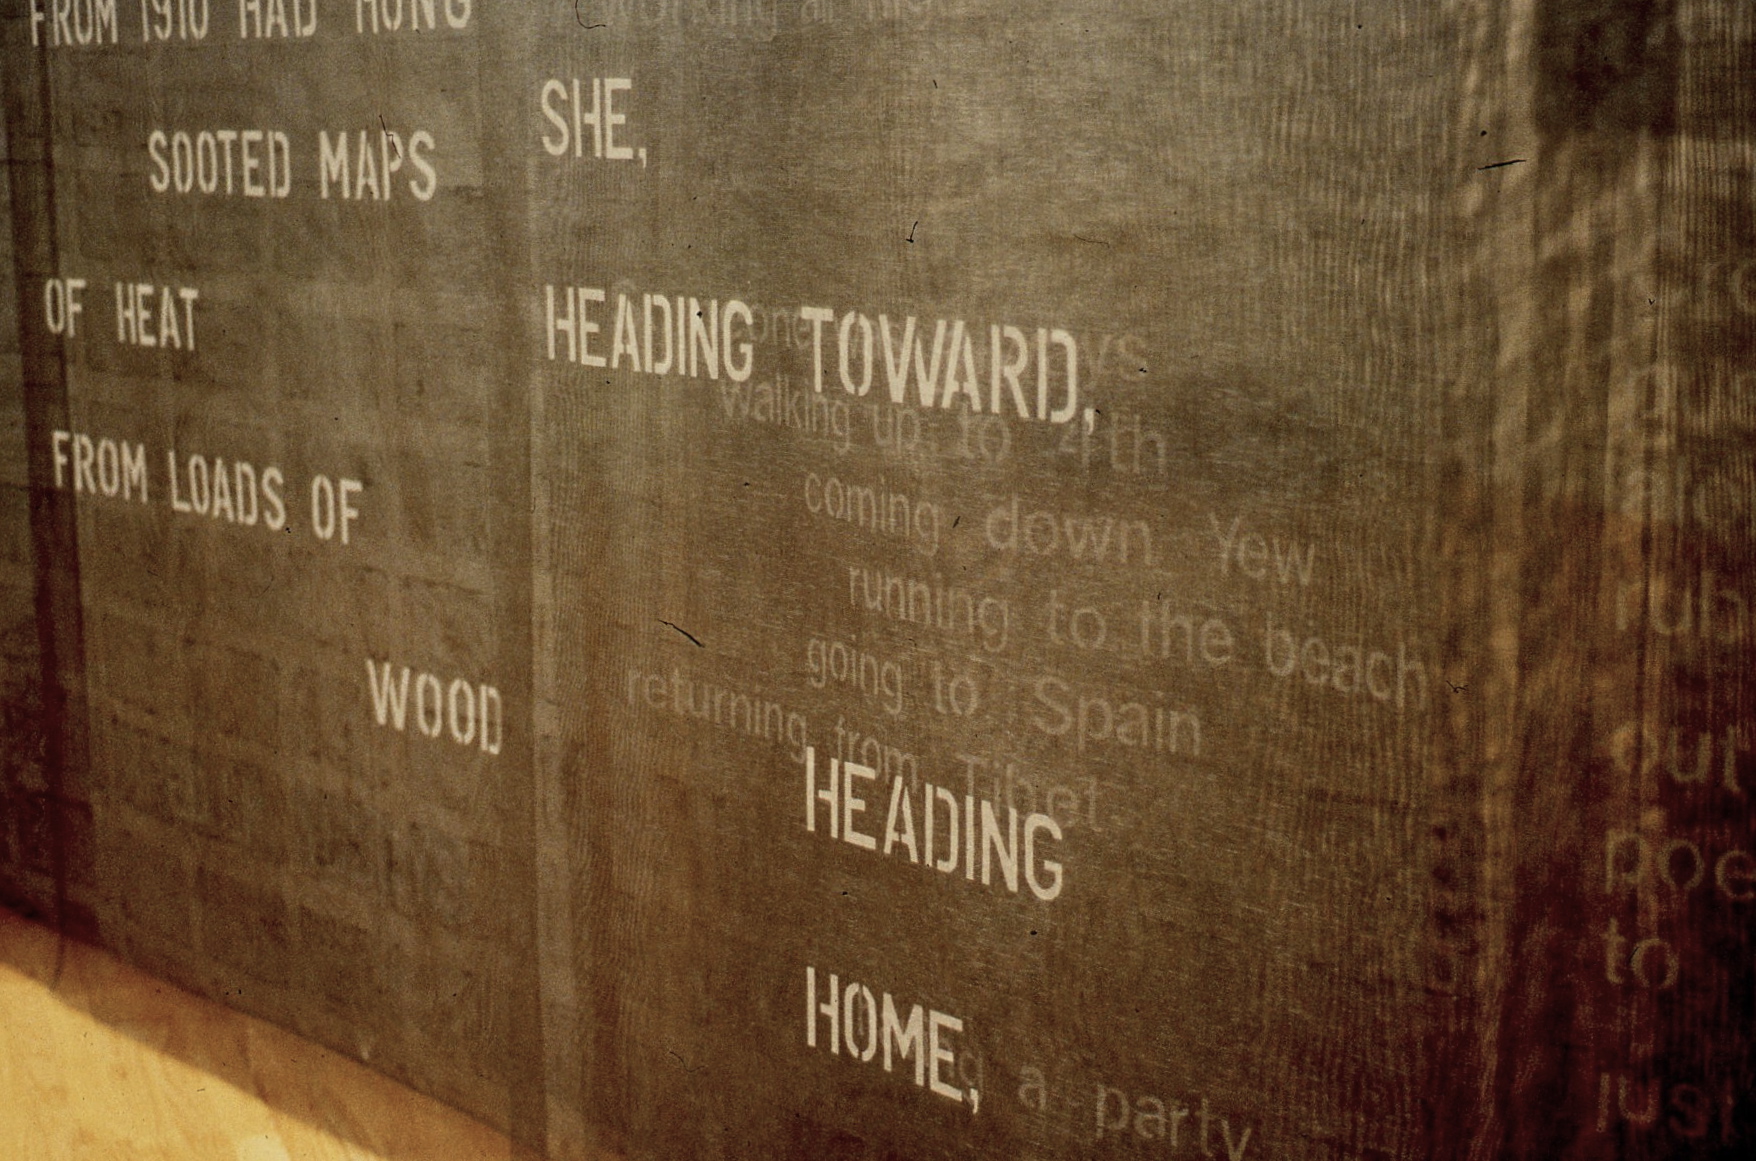 FROM 1910 HAD HUNG
SOOTED MAPS
OF HEAT
FROM LOADS OF
WOOD
working at
SHE,
HEADING TOWARD,
walking up to 4th
coming down Yew
running to the beach
going to Spain
returning from Tibet
HEADING
HOME,
a party
rub
out
to